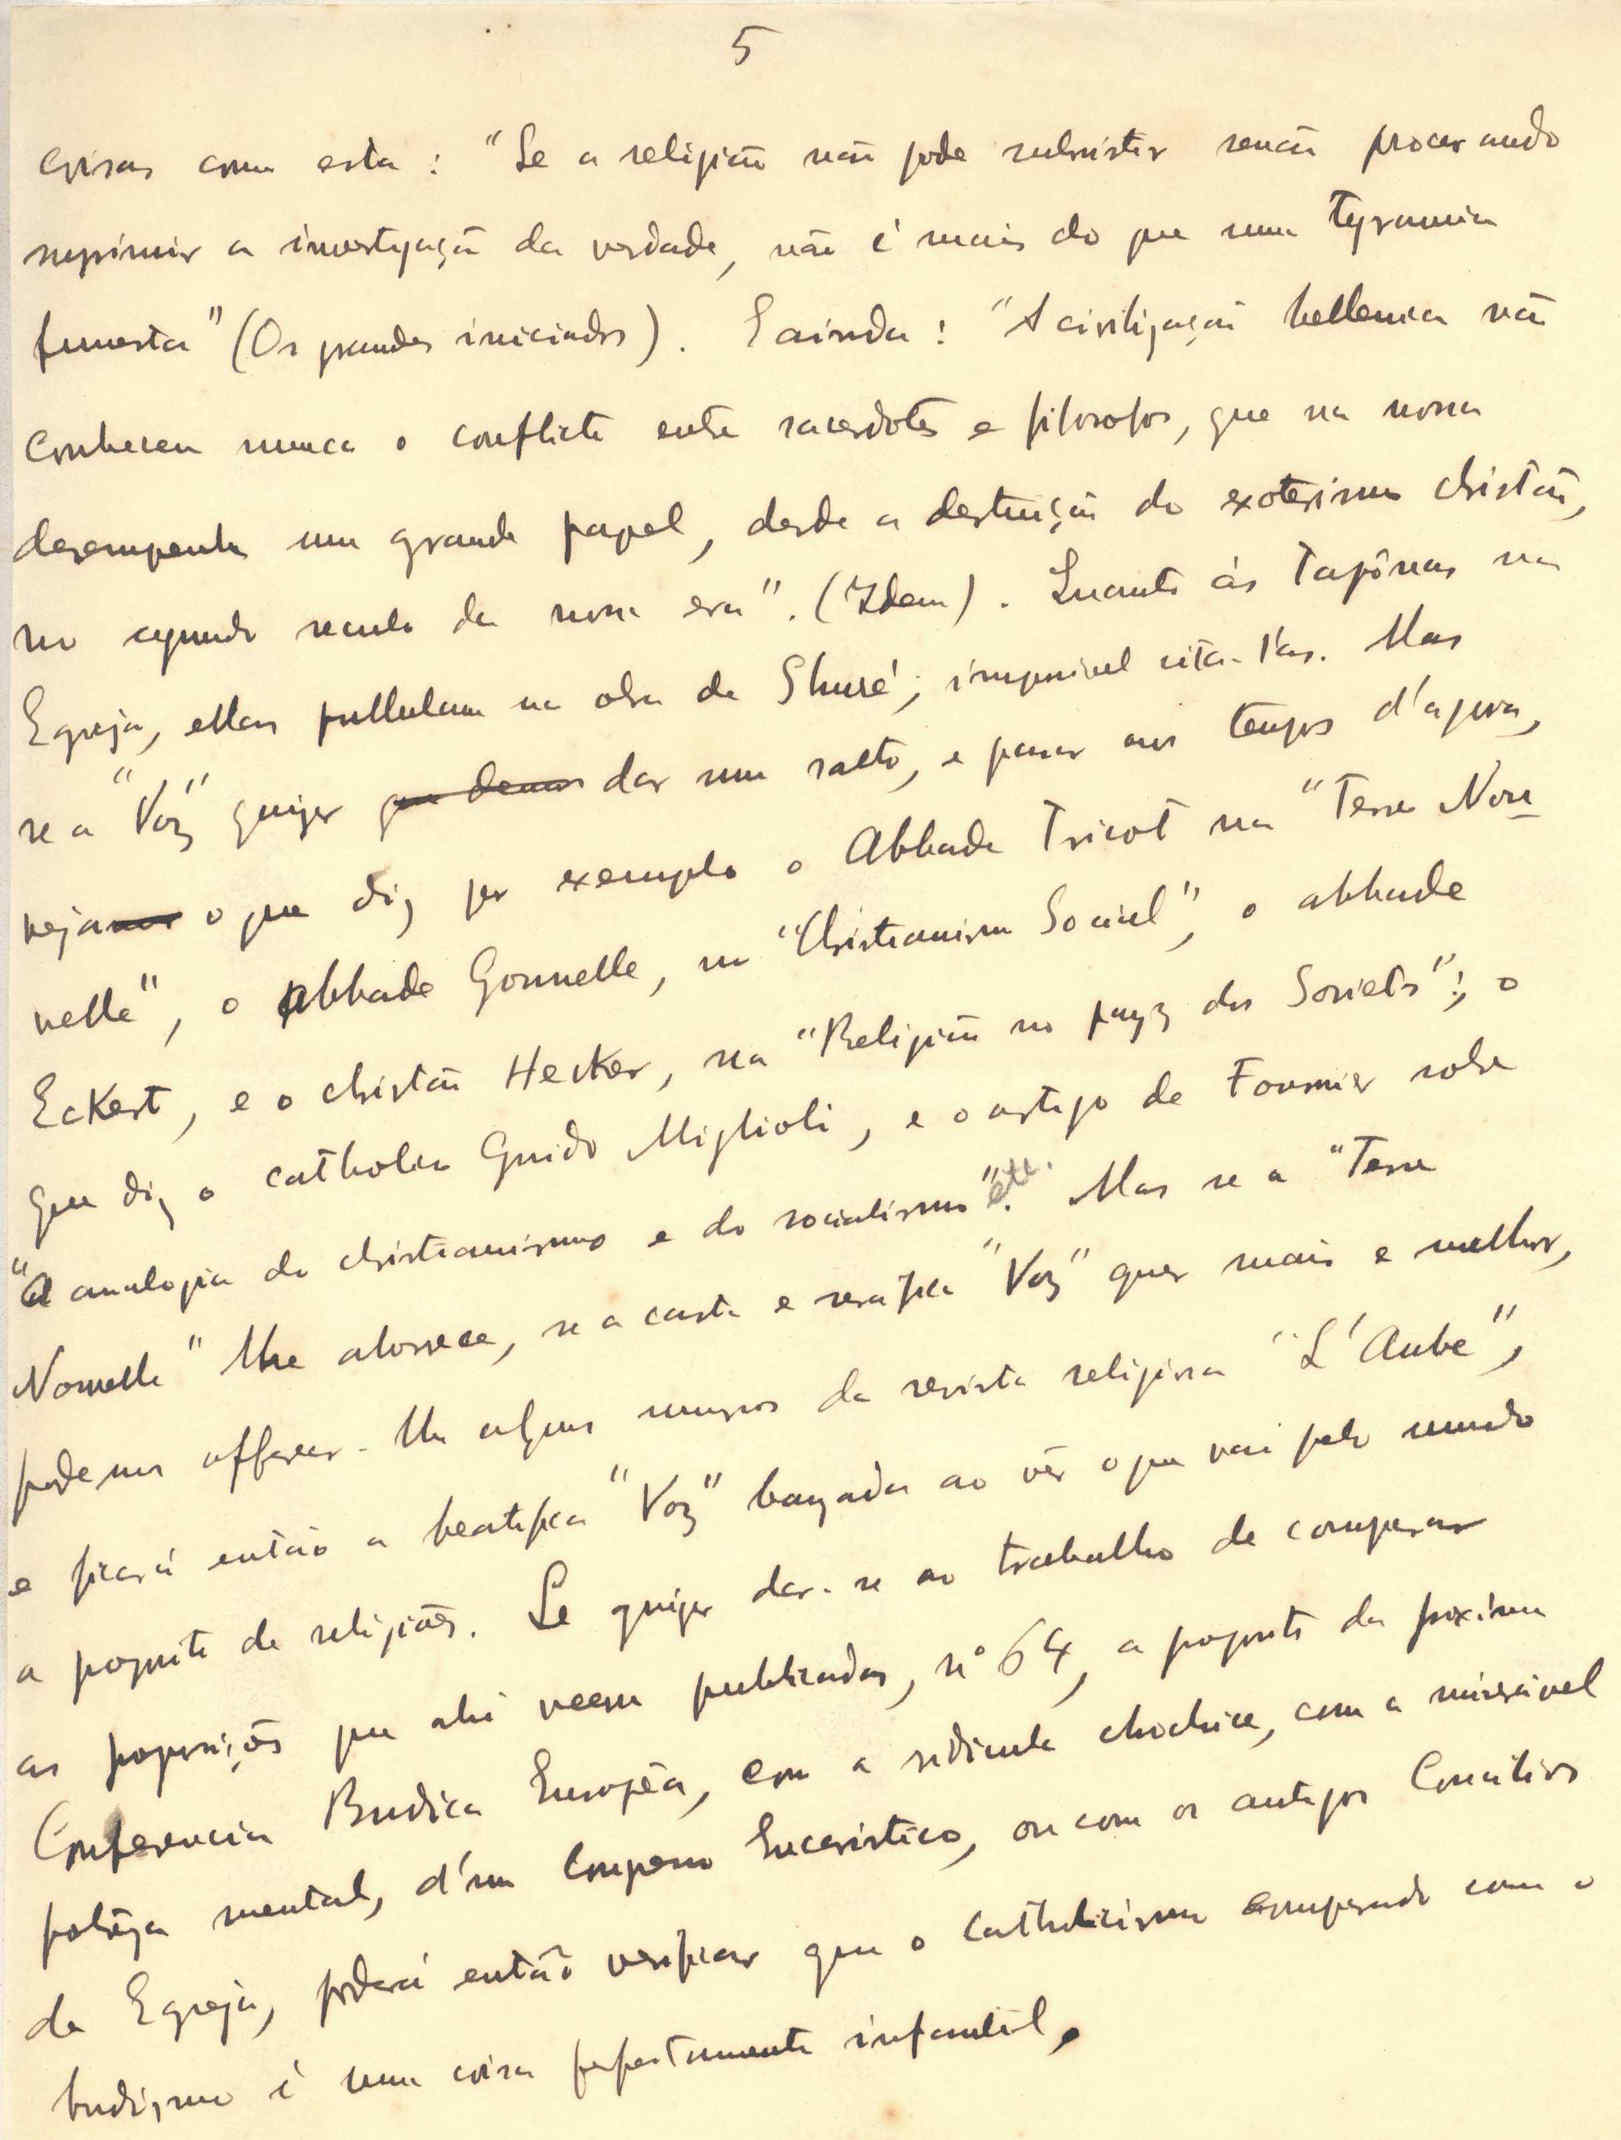 5
coisas como esta: "Se a religião não pode subsistir senão procurando
suprimir a investigação da verdade, não é mais do que uma tyrannia
funesta" (Os grandes iniciados). E ainda: "A civilização hellenica não
conheceu nunca o conflicto entre sacerdotes e filosofos, que na nossa
desempenha um grande papel, desde a destruição do exoterismo christão,
no segundo seculo da nossa era". (Idem). Quanto ás tapônas na
Egreja, ellas pullulam na obra de Shuré; impossivel cita-l'as. Mas
se a "Voz" quizer que demos dar um salto, e passar aos tempos d'agora,
vejamos o que diz por exemplo o Abbade Tricot na "Terre Nou
velle", o Abbade Gonnelle, no "Christianismo Social", o abbade
Eckert, e o christão Hecker, na "Religião no payz dos Soviets"; o
que diz o catholico Guido Miglioli, e o artigo de Fournier sobre
"A analogia do christianismo e do socialismo" etc. Mas se a "Terre
Nouvelle" lhe aborrece, se a casta e serafica "Voz" quer mais e melhor,
podemos offerecer-lhe alguns numeros da revista religiosa "L'Aube",
e ficará então a beatifica "Voz" banzada ao vêr o que vai pelo mundo
a proposito de religiões. Se quizer dar-se ao trabalho de comparar
as proposições que ahi veem publicadas, nº 64, a proposito da proxima
Conferencia Budica Européa, com a ridicula chochice, com a miseravel
pobrêza mental, d'um Congresso Eucaristico, ou com os antigos Concilios
da Egreja, poderá então verificar que o Catholicismo comparado com o
budismo é uma coisa perfeitamente infantil.